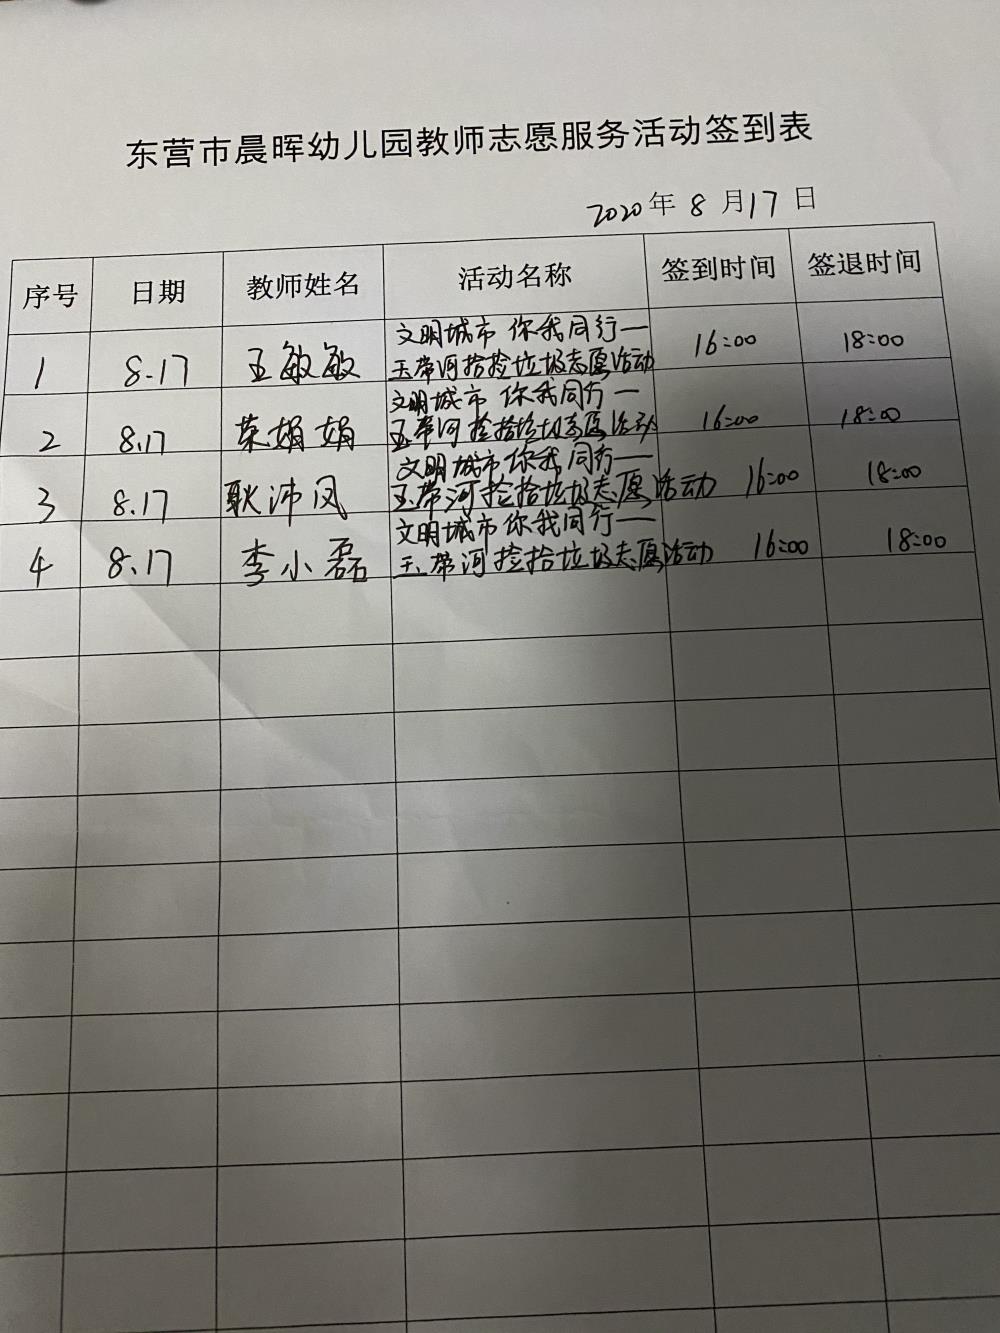 东营市晨晖幼儿园教师志愿服务活动签到表
2020年 8 月17 日
序号 日期 教师姓名 活动名称 签到时间 签退时间
文明城市 你我同行——
1 8.17 王敏敏 玉带河拾捡垃圾志愿活动 16:00 18:00
文明城市 你我同行——
2 8.17 荣娟娟 玉带河捡拾垃圾志愿活动 16:00 18:00
文明城市 你我同行——
3 8.17 耿沛凤 玉带河捡拾垃圾志愿活动 16:00 18:00
文明城市 你我同行——
4 8.17 李小磊 玉带河捡拾垃圾志愿活动 16:00 18:00